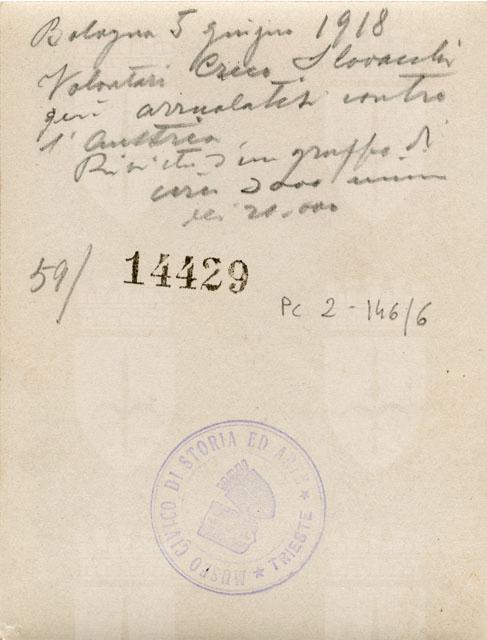 Bologna 5 giugno 1918
Volontari Czeco Slovacchi
arruolatisi contro
l'Austria
Rivista d'un gruppo di
circa 3000 uomini
20.000
59/
14429
Pc 2-146/6
MUSEO CIVICO DI STORIA ED ARTE ★ TRIESTE ★